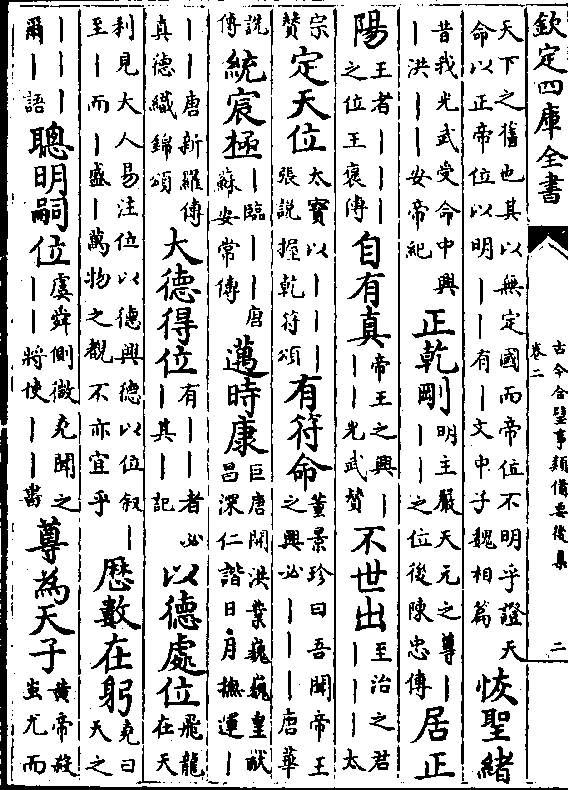 欽定四庫全書
古今合璧事類備要後集
卷二
二
天下之舊也其以無定國而帝位不明乎證天
命以正帝位以明丨丨有丨文中子魏相篇
恢聖緒
昔我光武受命中興
丨洪丨丨安帝紀
正乾剛
明主嚴天元之尊丨
丨丨之位後陳忠傳
居正
陽
王者丨丨丨
之位王襃傳
自有真
帝王之興丨
丨丨光武贊
不世出
至治之君
丨丨丨太
宗
贊
定天位
太寳以丨丨丨
張説握乾符頌
有符命
董景珍曰吾聞帝王
之興必丨丨丨唐華
説
傳
統宸極
丨臨丨丨唐
蘇安常傳
邁時康
巨唐開洪業巍巍皇猷
昌深仁諧日月撫運丨
丨丨唐新羅傳
真德織錦頌
大德得位
有丨丨者必
丨其丨記
以德處位
飛龍
在天
利見大人易注位以德興德以位叙丨
至丨而丨盛丨萬物之觀不亦宜乎
厯數在躬
堯曰
天之
丨丨丨
爾丨語
聰明嗣位
虞舜側微堯聞之
丨丨將使丨丨書
尊為天子
黄帝殺
蚩尤而